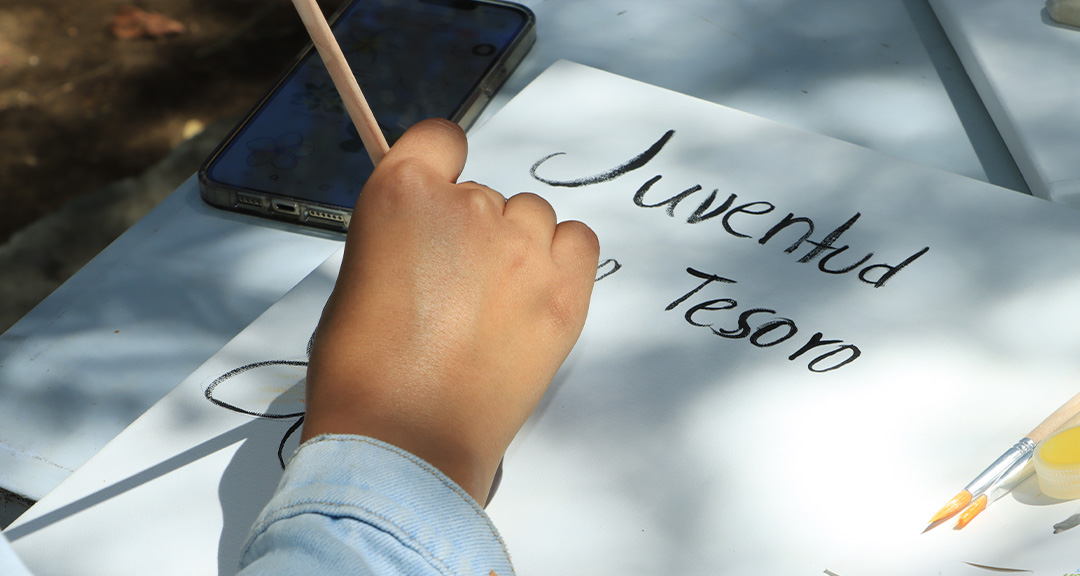 Juventud
Tesoro